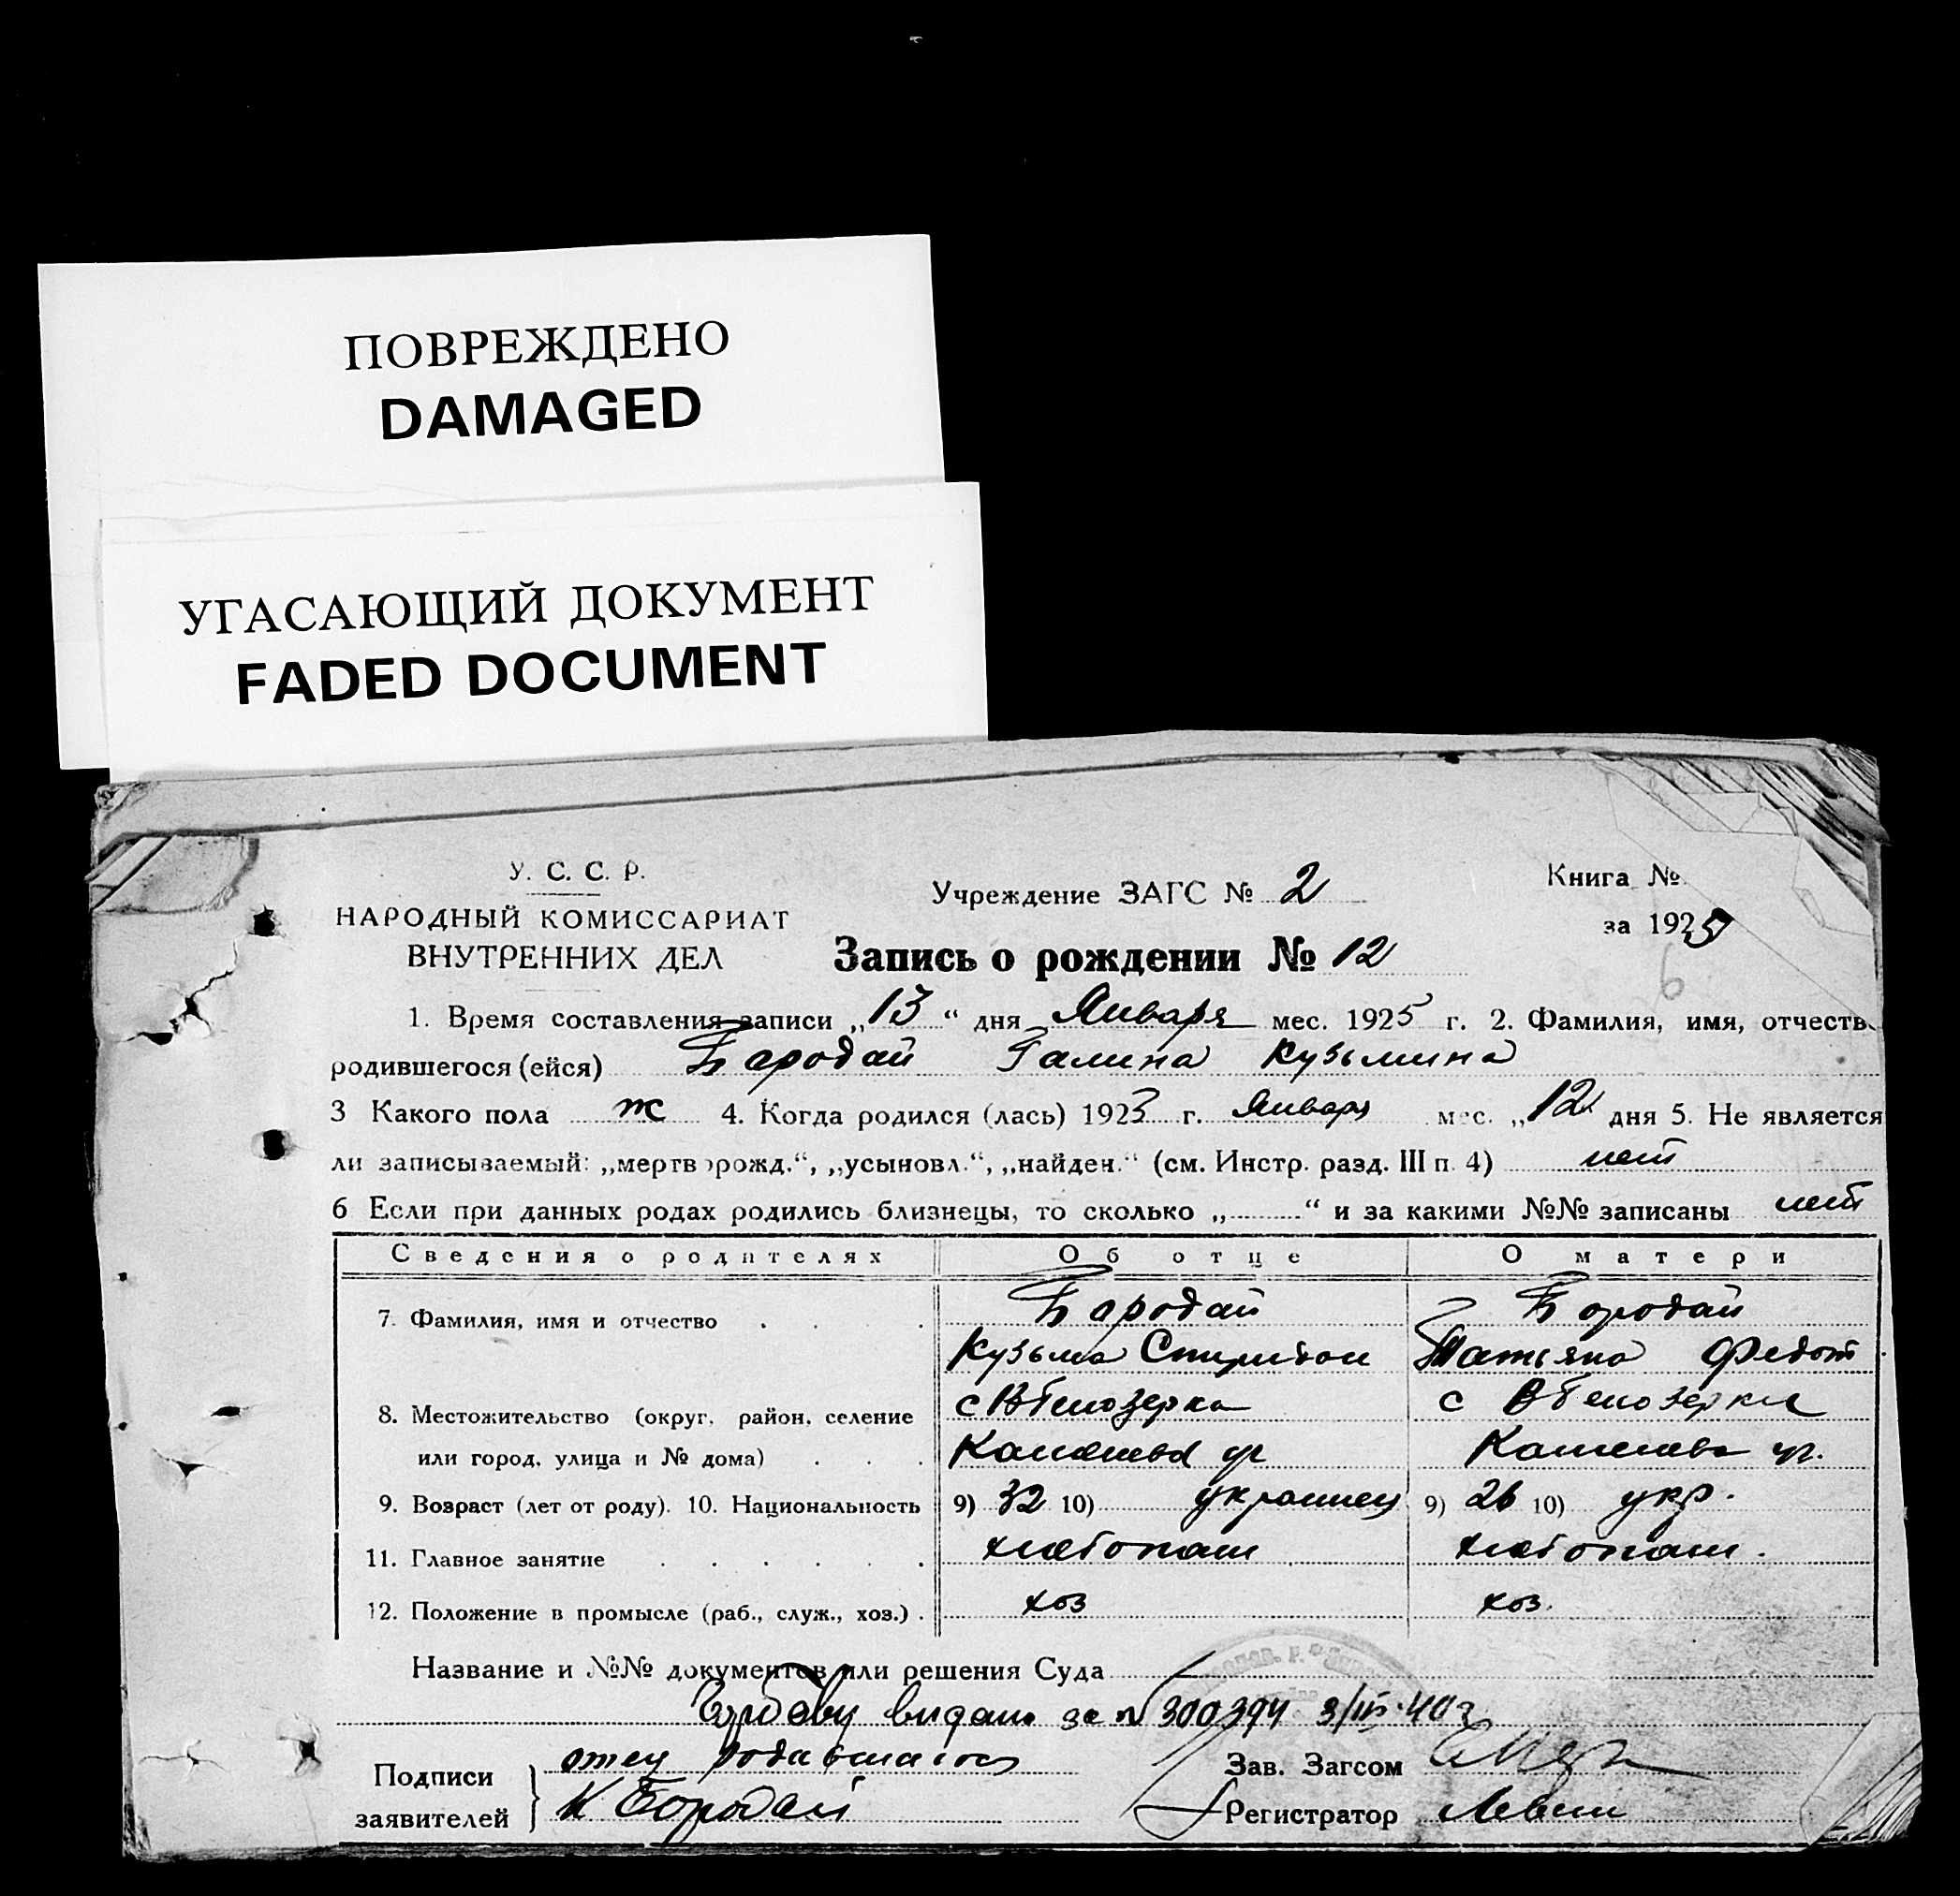 ПОВРЕЖДЕНО
DAMAGED
УГАСАЮЩИЙ ДОКУМЕНТ
FADED DOCUMENT
У. С. С. Р.
НАРОДНЫЙ КОМИССАРИАТ
ВНУТРЕННИХ ДЕЛ
Учреждение ЗАГС № 2
Книга №
за 1925
6
Запись о рождении № 12
1. Время составления записи „13“ дня Января мес. 1925 г. 2. Фамилия, имя, отчеств
родившегося (ейся) Бородай Галина Кузьмина
3 Какого пола ж 4. Когда родился (лась) 1923 г. Января мес. „12 дня 5. Не является
ли записываемый: „мертворожд.“, „усыновл.“, „найден.“ (см. Инстр. разд. III п. 4) нет
6 Если при данных родах родились близнецы, то сколько „.........“ и за какими №№ записаны нет
Сведения о родителях Об отце О матери
7. Фамилия, имя и отчество Бородай Бородай
Кузьма Спиридон Татьяна Федот
8. Местожительство (округ, район, селение с Белозерка с Белозерка
или город, улица и № дома)
9. Возраст (лет от роду). 10. Национальность 9) 32 10) украинец 9) 26 10) укр.
11. Главное занятие хлебопаш хлебопаш.
12. Положение в промысле (раб., служ., хоз.) хоз хоз.
Название и №№ документов или решения Суда
видано за № 300394 3/III-40г
Подписи
заявителей
отец
К Бородай
Зав. Загсом
Регистратор Левин